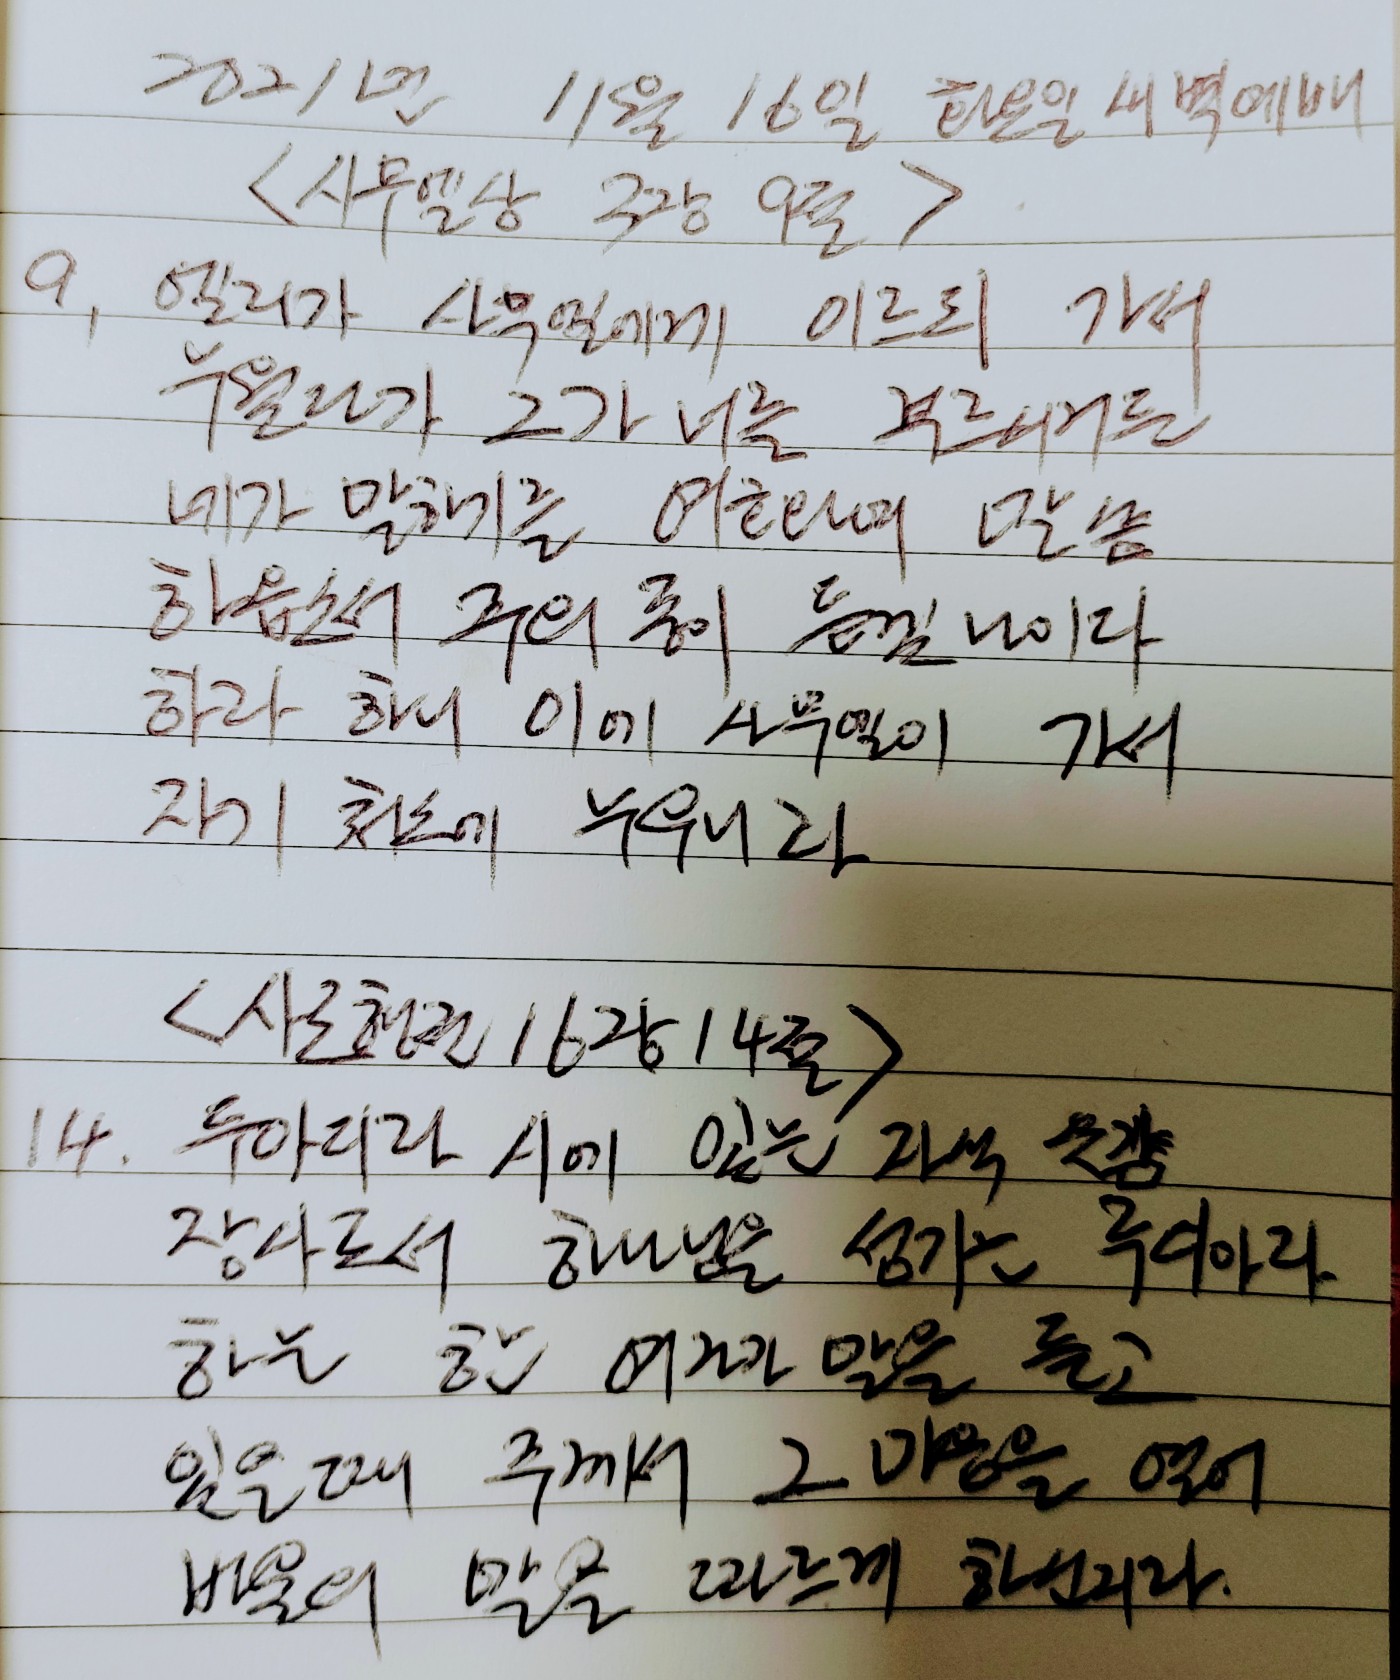 2021년 11월 16일 화요일 새벽예배
<사무엘상 3장 9절>
9, 엘리가 사무엘에게 이르되 가서
누웠다가 그가 너를 부르시거든
네가 말하기를 여호와여 말씀
하옵소서 주의 종이 듣겠나이다
하라 하니 이에 사무엘이 가서
자기 처소에 누우니라
<사도행전 16장 14절>
14. 두아디라 시에 있는 자색 옷감
장사로서 하나님을 섬기는 루디아라
하는 한 여자가 말을 듣고
있을 때 주께서 그 마음을 열어
바울의 말을 따르게 하신지라.